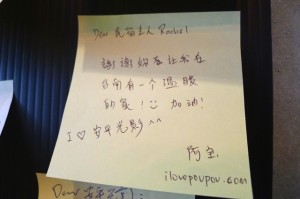 Dear 民宿主人 Rachel
謝謝妳 讓我在
台南有一个溫暖
的家! 加油!
I ♡ 安平光影 ^^
阿宝
ilovepoupou.com
Dear